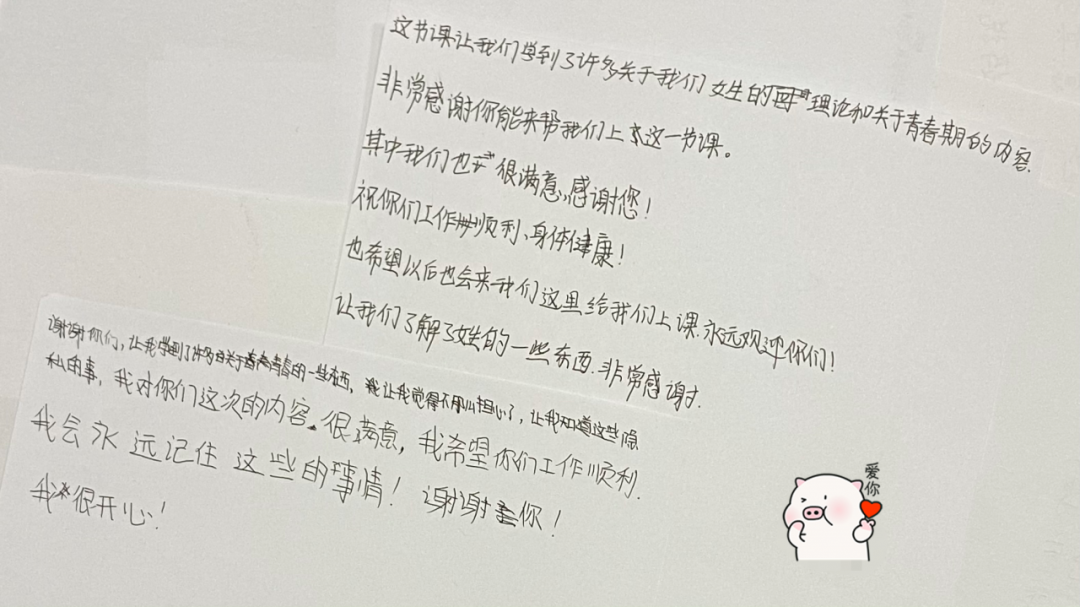 这节课让我们学到了许多关于我们女生的理论和关于青春期的内容.
非常感谢你能来帮我们上这一节课。
其中我们也很满意,感谢您!
祝你们工作顺利、身体健康!
也希望以后也会来我们这里给我们上课.永远欢迎你们!
让我们了解了女生的一些东西.非常感谢.
谢谢你们,让我学到了许多关于青春的一些东西,让我觉得不用担心了,让我知道这些隐
私的事,我对你们这次的内容很满意,我希望你们工作顺利.
我会永远记住这些的事情!谢谢你!
我很开心!
爱你